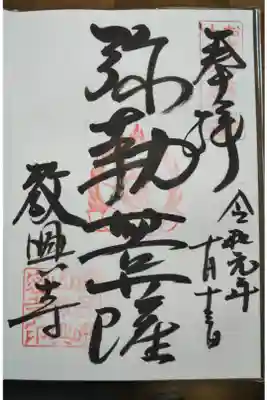 奉拝
令和元年
十月十三日
弥勒菩薩
發興寺